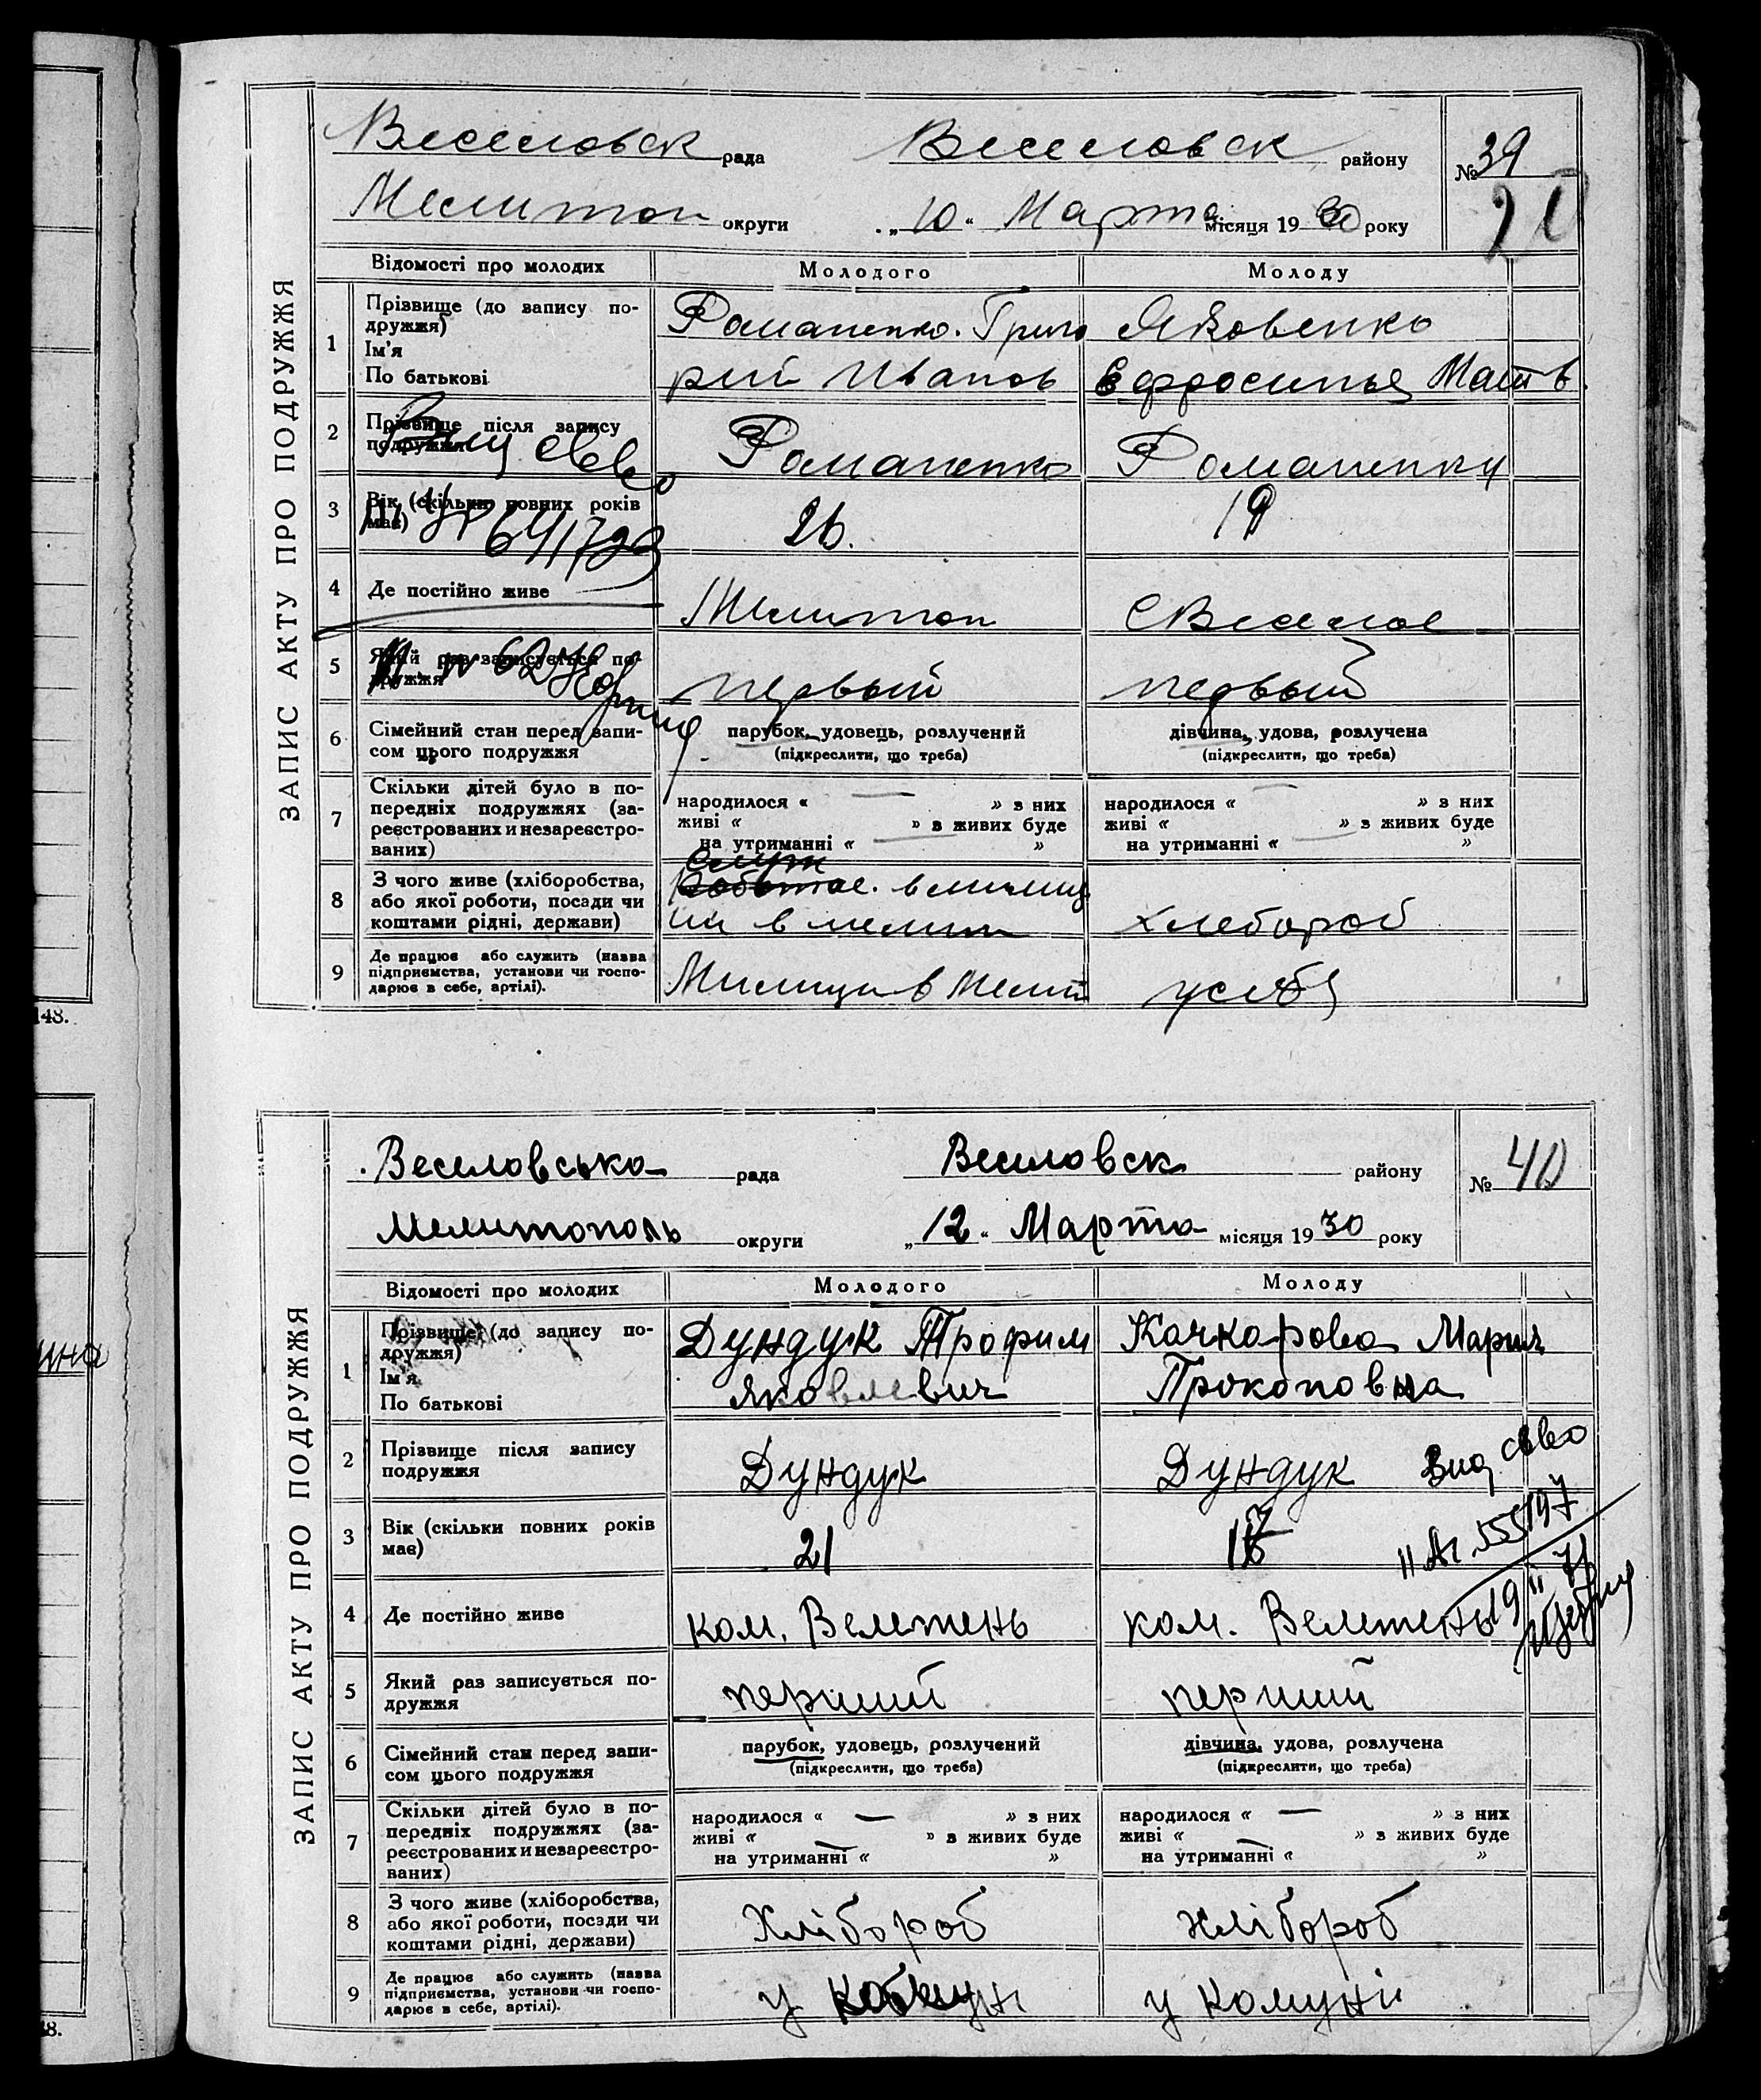 ЗАПИС АКТУ ПРО ПОДРУЖЖЯ
Веселовск рада Веселовск району №39
Мелитоп округи „10“ Марта місяця 1930 року
Відомості про молодих Молодого Молоду
1 Прізвище (до запису по-
дружжя)
Ім'я
По батькові
Романенко. Григо
рий Иванов
Яковенко
Ефросинья Матв.
2 Прізвище після запису
подружжя
Романенко Романенку
3 Вік (скільки повних років
має)
26. 19
4 Де постійно живе
Мелитоп С Веселое
5 Який раз записується по-
дружжя
первый первый
6 Сімейний стан перед запи-
сом цього подружжя
парубок, удовець, розлучений
(підкреслити, що треба)
дівчина, удова, розлучена
(підкреслити, що треба)
7 Скільки дітей було в по-
передніх подружжях (за-
реєстрованих и незареєстро-
ваних)
народилося « — » з них
живі « » з живих буде
на утриманні « — »
народилося « — » з них
живі « » з живих буде
на утриманні « — »
8 З чого живе (хліборобства,
або якої роботи, посади чи
коштами рідні, держави)
Служ
в милици
ии в мелит
хлебороб
9 Де працює або служить (назва
підприємства, установи чи госпо-
дарює в себе, артілі).
Милици в Мелит
у себя
148.
ЗАПИС АКТУ ПРО ПОДРУЖЖЯ
Веселовська рада Веселовск району № 40
Мелитополь округи „12“ Марта місяця 1930 року
Відомості про молодих Молодого Молоду
1 Прізвище (до запису по-
дружжя)
Ім'я
По батькові
Дундук Трофим
Яковлевич
Качкарова Мария
Прокоповна
2 Прізвище після запису
подружжя
Дундук Дундук Вид св-во
3 Вік (скільки повних років
має)
21
4 Де постійно живе
ком. Велетень ком. Велетень
5 Який раз записується по-
дружжя
перший перший
6 Сімейний стан перед запи-
сом цього подружжя
парубок, удовець, розлучений
(підкреслити, що треба)
дівчина, удова, розлучена
(підкреслити, що треба)
7 Скільки дітей було в по-
передніх подружжях (за-
реєстрованих и незареєстро-
ваних)
народилося « — » з них
живі « — » з живих буде
на утриманні « »
народилося « — » з них
живі « — » з живих буде
на утриманні « »
8 З чого живе (хліборобства,
або якої роботи, посади чи
коштами рідні, держави)
Хлібороб хлібороб
9 Де працює або служить (назва
підприємства, установи чи госпо-
дарює в себе, артілі).
у у комуні